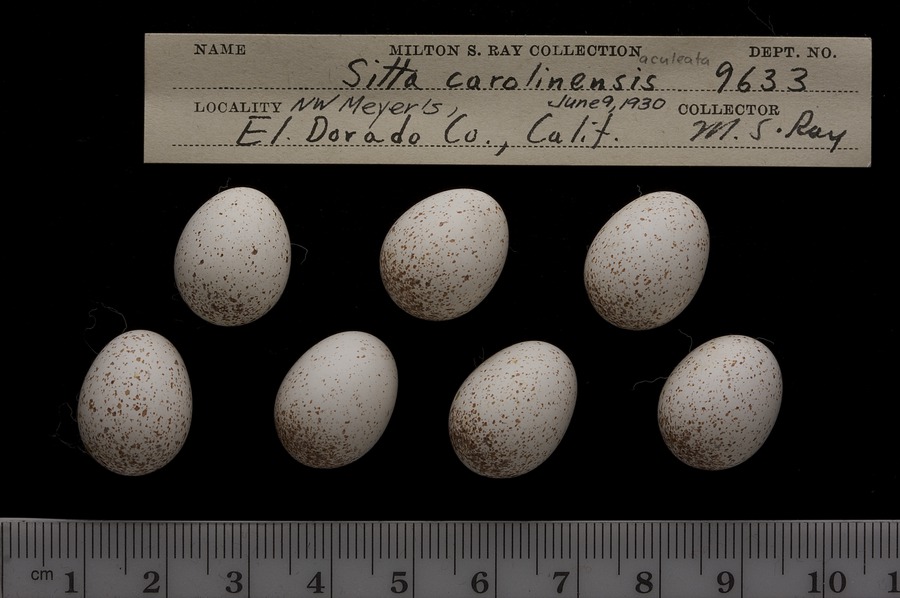 NAME MILTON S. RAY COLLECTION aculeata DEPT. NO.
Sitta carolinensis 9633
LOCALITY NW Meyer's, June 9, 1930 COLLECTOR
El Dorado Co., Calif. M. S. Ray
cm 1 2 3 4 5 6 7 8 9 10 1